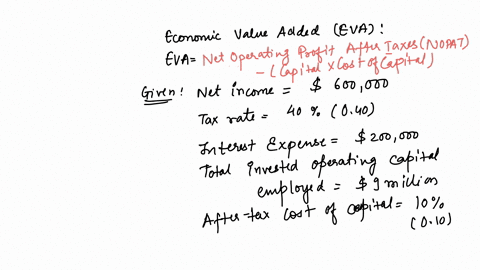 Economic Value Added (EVA):
EVA= Net Operating Profit After Taxes (NOPAT)
- (Capital x Cost of Capital)
Given: Net income = $ 600,000
Tax rate = 40 % (0.40)
Interest Expense = $200,000
Total Invested operating capital
employed = $9 million
After-tax cost of capital = 10%
(0.10)